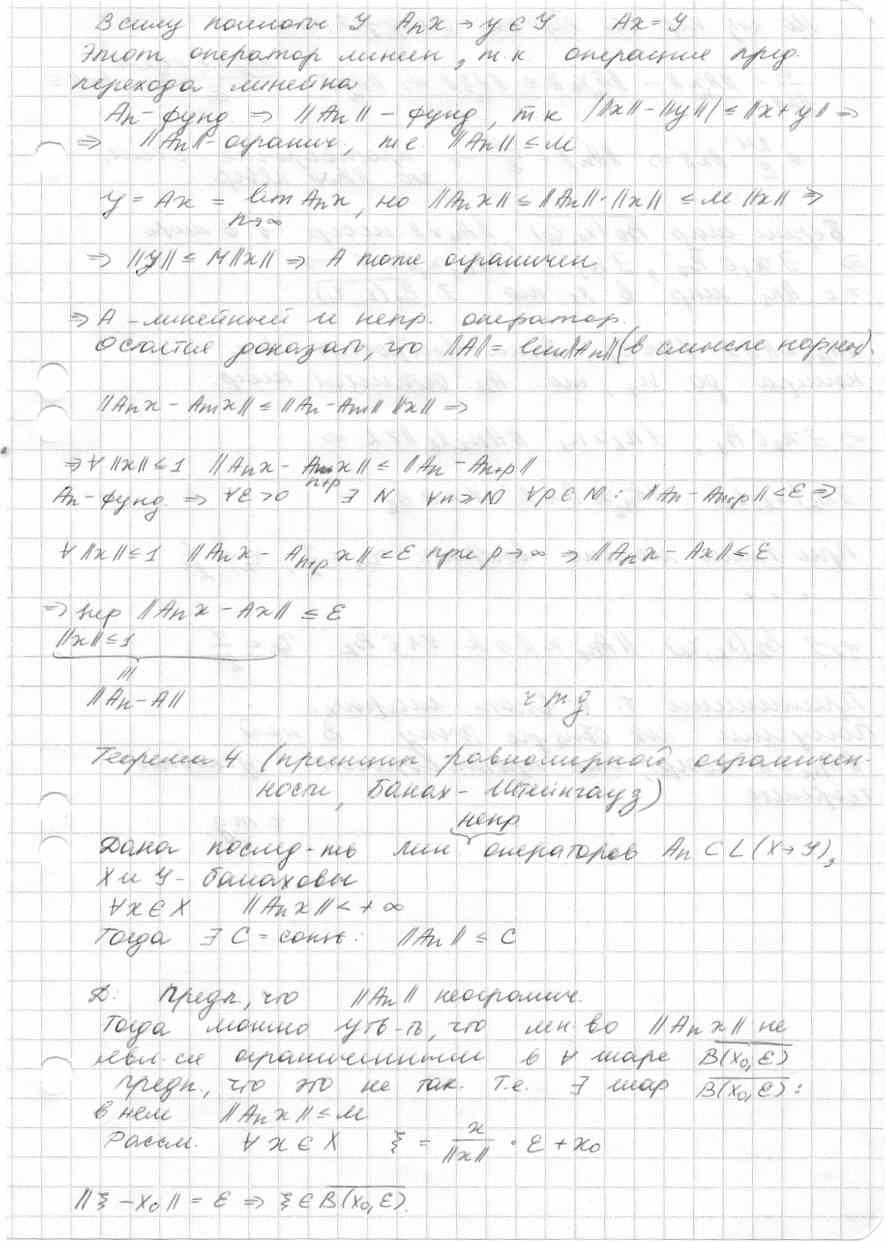 В силу полноты Y Anx → y ∈ Y Ax = y
Этот оператор линеен, т.к операция пред.
перехода линейна
An - фунд ⇒ ||An|| - фунд, т к | ||x|| - ||y|| | ≤ ||x + y|| ⇒
⇒ ||An|| - огранич, т.е. ||An|| ≤ M
y = Ax = lim n→∞ Anx, но ||Anx|| ≤ ||An||·||x|| ≤ M ||x|| ⇒
⇒ ||y|| ≤ M||x|| ⇒ A тоже ограничен
⇒ A - линейный и непр. оператор.
Остался доказать, что ||A|| = lim||An|| (в смысле нормы).
||Anx - Amx|| ≤ ||An - Am|| ||x|| ⇒
⇒ ∀ ||x|| ≤ 1 ||Anx - An+p x|| ≤ ||An - An+p||
An - фунд. ⇒ ∀ε > 0 ∃ N ∀n ≥ N ∀p ∈ N : ||An - An+p|| < ε ⇒
∀ ||x|| ≤ 1 ||Anx - An+p x|| < ε при p → ∞ ⇒ ||Anx - Ax|| ≤ ε
⇒ sup ||Anx - Ax|| ≤ ε
||x|| ≤ 1
|||
||An - A||
ч т д.
Теорема 4 (принцип равномерной ограничен-
ности, Банах - Штейнгауз)
непр
Дана послед-ть лин операторов An ⊂ L(X → Y),
X и Y - банаховы
∀x ∈ X ||Anx|| < + ∞
Тогда ∃ C = const: ||An|| ≤ C
Д: Предп, что ||An|| неогранич.
Тогда можно утв-ть, что мн-во ||Anx|| не
явл-ся ограниченным в ∀ шаре B(x0, ε)
Предп., что это не так. Т.е. ∃ шар B(x0, ε) :
в нем ||Anx|| ≤ M
Рассм. ∀ x ∈ X ξ = x/||x|| · ε + x0
||ξ - x0|| = ε ⇒ ξ ∈ B(x0, ε).